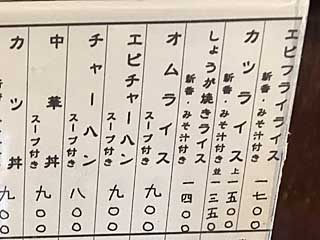 エビフライライス
新香・みそ汁付き 一七〇〇
カツライス
新香・みそ汁付き 上一五〇〇
しょうが焼きライス
新香・みそ汁付き 並一三五〇
オムライス
新香・みそ汁付き 一四〇〇
スープ付き 九〇〇
エビチャーハン
スープ付き 九〇〇
チャーハン
スープ付き 八〇〇
中華丼
スープ付き 九〇〇
カツ丼
九〇〇